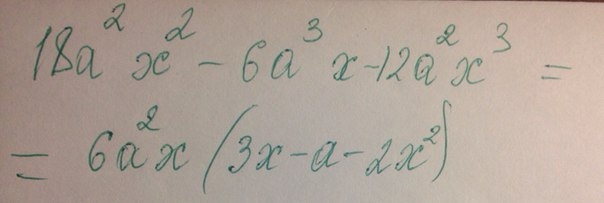 18a²x² - 6a³x - 12a²x³ =
= 6a²x (3x - a - 2x²)